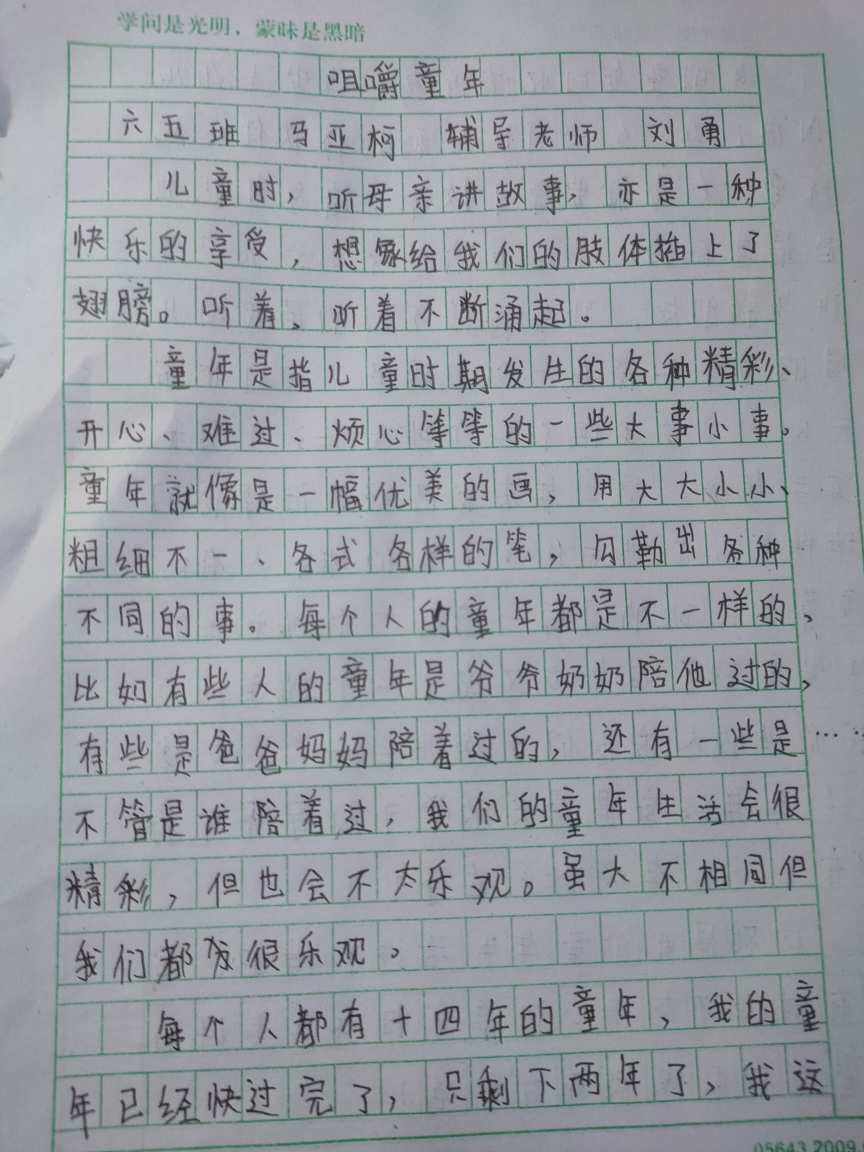 学问是光明，蒙昧是黑暗
咀嚼童年
六五班 马亚柯 辅导老师 刘勇
儿童时，听母亲讲故事，亦是一种
快乐的享受，想象给我们的肢体插上了
翅膀。听着，听着不断涌起。
童年是指儿童时期发生的各种精彩、
开心、难过、烦心等等的一些大事小事。
童年就像是一幅优美的画，用大大小小、
粗细不一、各式各样的笔，勾勒出各种
不同的事。每个人的童年都是不一样的，
比如有些人的童年是爷爷奶奶陪他过的，
有些是爸爸妈妈陪着过的，还有一些是……
不管是谁陪着过，我们的童年生活会很
精彩，但也会不太乐观。虽大不相同但
我们都很乐观。
每个人都有十四年的童年，我的童
年已经快过完了，只剩下两年了，我这
05643.2009